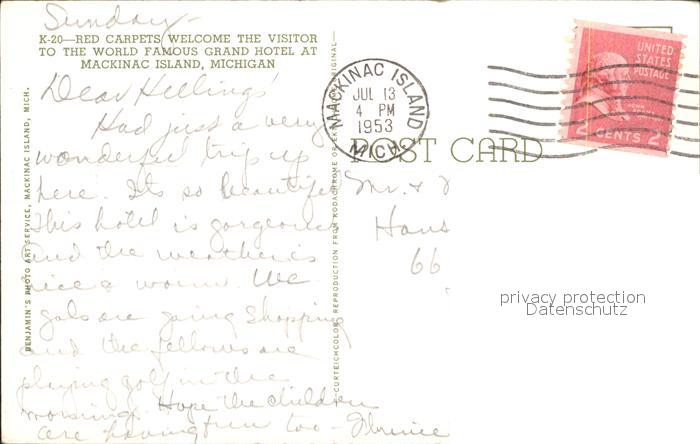 Sunday -
K-20—RED CARPETS WELCOME THE VISITOR
TO THE WORLD FAMOUS GRAND HOTEL AT
MACKINAC ISLAND, MICHIGAN
Dear
Had just a very
wonderful trip up
here. Its so beautiful
This hotel is gorgeous
and the weather is
nice & warm. We
gals are going shopping
and the fellows are
playing golf in the
morning. Hope the children
are having fun too -
BENJAMIN'S PHOTO ART SERVICE, MACKINAC ISLAND, MICH.
CURTEICHCOLOR REPRODUCTION FROM KODACHROME OR EKTACHROME ORIGINAL—
MACKINAC ISLAND
JUL 13
4 PM
1953
MICH.
POST CARD
UNITED
STATES
POSTAGE
JOHN ADAMS
2 CENTS 2
Mr. &
Hans
66
privacy protection
Datenschutz